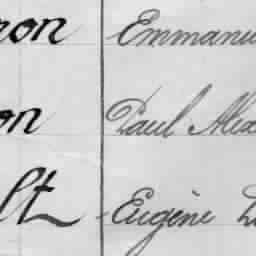 ron Emmanu
on Paul Alex
lt Eugène L